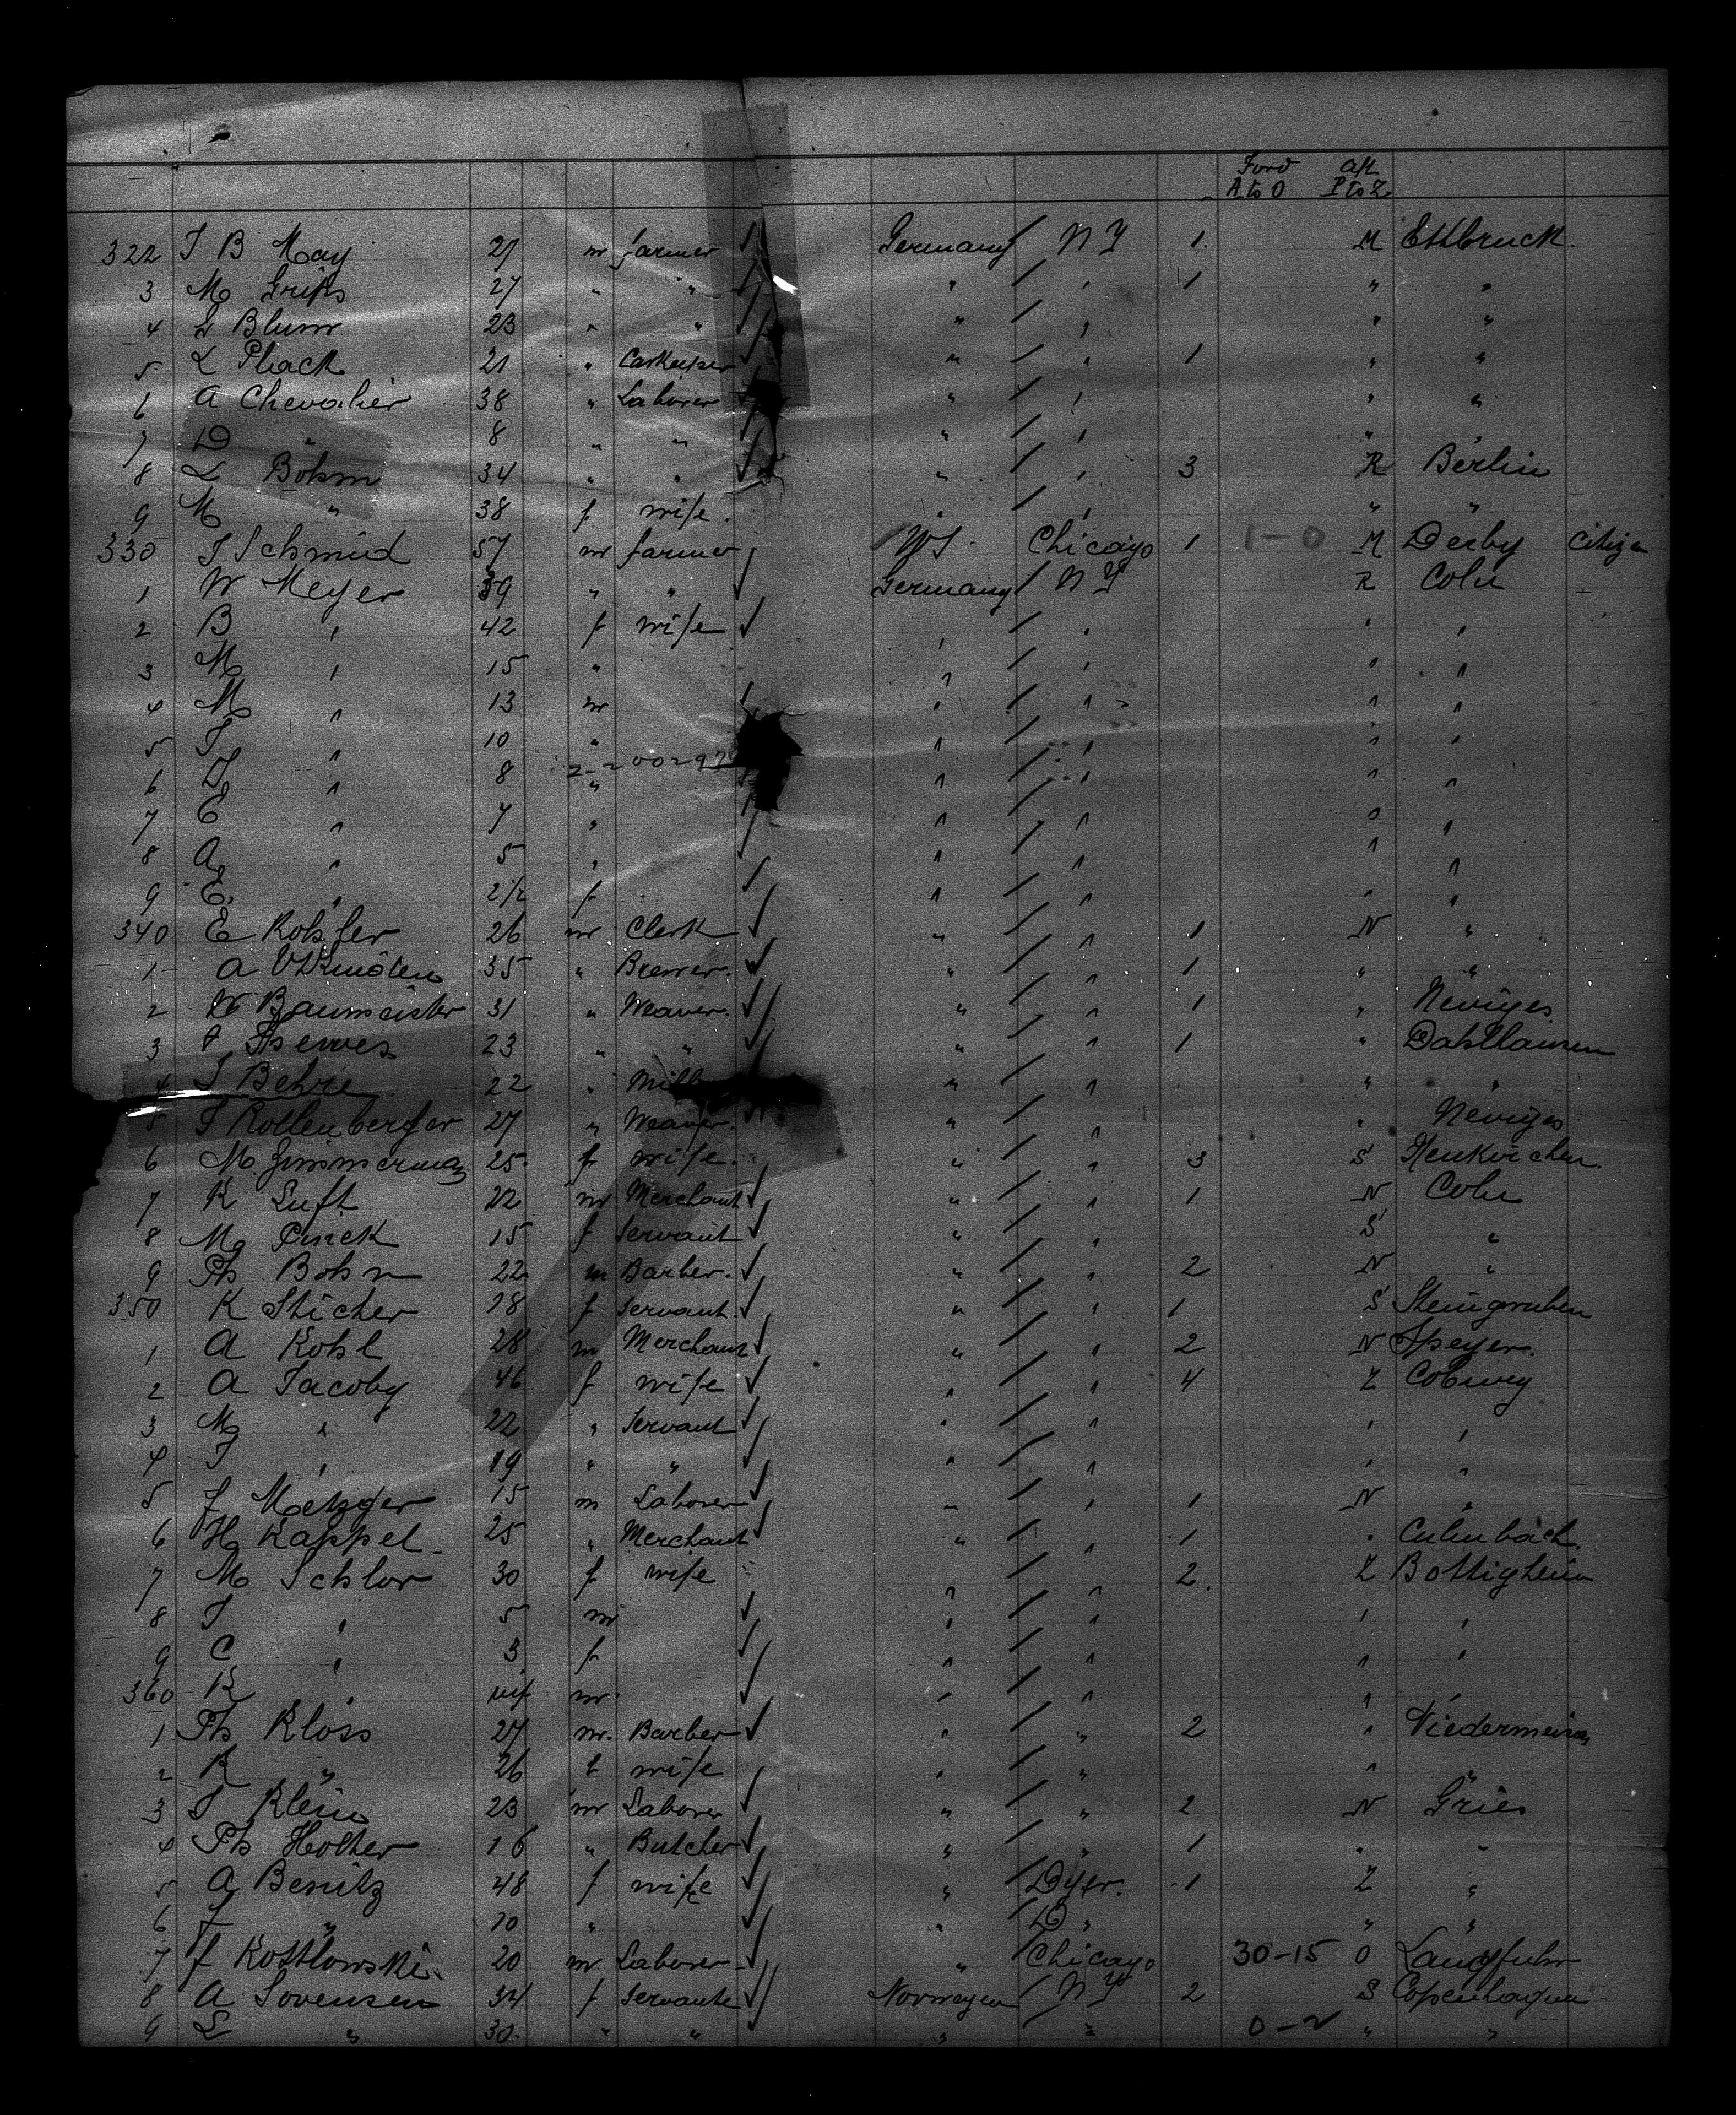 Ford Aft
A to O P to Z
322 J B May 21 m farmer Germany / N Y 1 M Ettbruck
3 M 27 " " " / " 1 " "
4 L Blum 23 " " " / " " "
5 L Plack 21 " " / " 1 " "
6 A Chevalier 38 " Laborer " / " " "
7 D " 8 " " " / " " "
8 L Böhm 34 " " " / " 3 R Berlin
9 M " 38 f wife " / " " "
330 J Schmid 57 m farmer Chicago 1 1-0 M Derby Citizen
1 W Meyer 39 " " Germany / N Y R Coln
2 B " 42 f wife " / " " "
3 M " 15 " " / " " "
4 M " 13 m " / " " "
5 J " 10 " " / " " "
6 " 8 " " / " " "
7 E " 7 " " / " " "
8 A " 5 " " / " " "
9 E " 2 1/2 f " / " " "
340 E 26 m Clerk " / " 1 N "
1 A 35 " Brewer " / " 1 " "
2 W Baumeister 31 " Weaver " / " 1 " Neviges
3 23 " " " / " 1 " Dahlhausen
4 J Behre 22 " " / " " "
5 J Rottenberger 27 " Weaver " / " " Neviges
6 M Zimmerman 25 f wife " / " 3 S Neukirchen
7 K Luft 22 m Merchant " / " 1 N Coln
8 M Pinek 15 f Servant " / " S "
9 Ph Bohn 22 m Barber " / " 2 N "
350 K Sticher 18 f Servant " / " 1 S Steingruben
1 A Kohl 28 m Merchant " / " 2 N Speyer
2 A Jacoby 46 f wife " / " 4 Z Coburg
3 M " 22 " Servant " / " " "
4 J " 19 " " " / " " "
5 J Metzger 15 m Laborer " / " 1 N "
6 H Kappel 25 " Merchant " / " 1 " Culmbach
7 M Schlor 30 f wife " / " 2 Z Bottigheim
8 J " 5 m " / " " "
9 C " 3 f " / " " "
360 K " inf m " / " " "
1 Ph Kloss 27 m Barber " / " 2 " Niedermeisa
2 K " 26 f wife " / " " "
3 J Klein 23 m Laborer " / " 2 N Gries
4 Ph Holher 16 " Butcher " / " 1 " "
5 A Benitz 48 f wife " / Dyer 1 Z "
6 J " 10 " " / D " " "
7 J Kottlowski 20 m Laborer " / Chicago 30-15 O Langfuhr
8 A Sorensen 34 f Servant Norwegen / N Y 2 S Copenhagen
9 L " 30 " " " " 0-2 " "